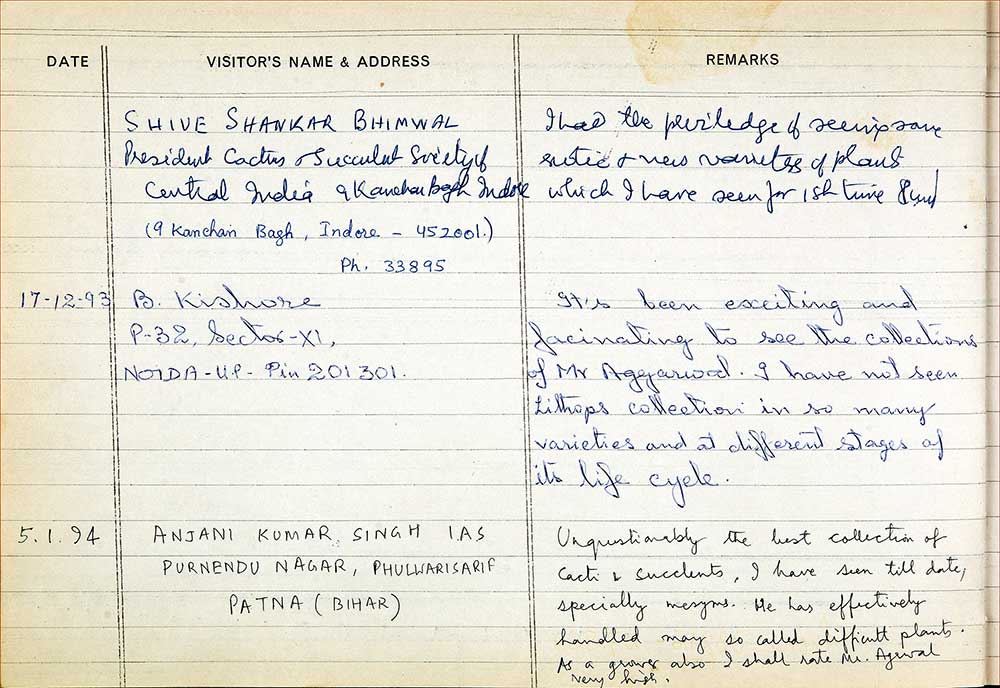 DATE VISITOR'S NAME & ADDRESS REMARKS
SHIVE SHANKAR BHIMWAL
President Cactus & Succulent Society of
Central India 9 Kanchan Bagh Indore
(9 Kanchan Bagh, Indore - 452001.)
Ph. 33895
I had the periledge of seeing some
exotic & new varieties of plant
which I have seen for 1st time
17-12-93
B. Kishore
P-32, Sector-XI,
NOIDA-UP- Pin 201301.
It's been exciting and
facinating to see the collections
of Mr Aggarwal. I have not seen
Lithops collection in so many
varieties and at different stages of
its life cycle.
5.1.94
ANJANI KUMAR SINGH IAS
PURNENDU NAGAR, PHULWARISARIF
PATNA (BIHAR)
Unquestionably the best collection of
Cacti & Succulents, I have seen till date,
specially mesyms. He has effectively
handled may so called difficult plants.
As a grower also I shall rate Mr. Agrwal
very high.